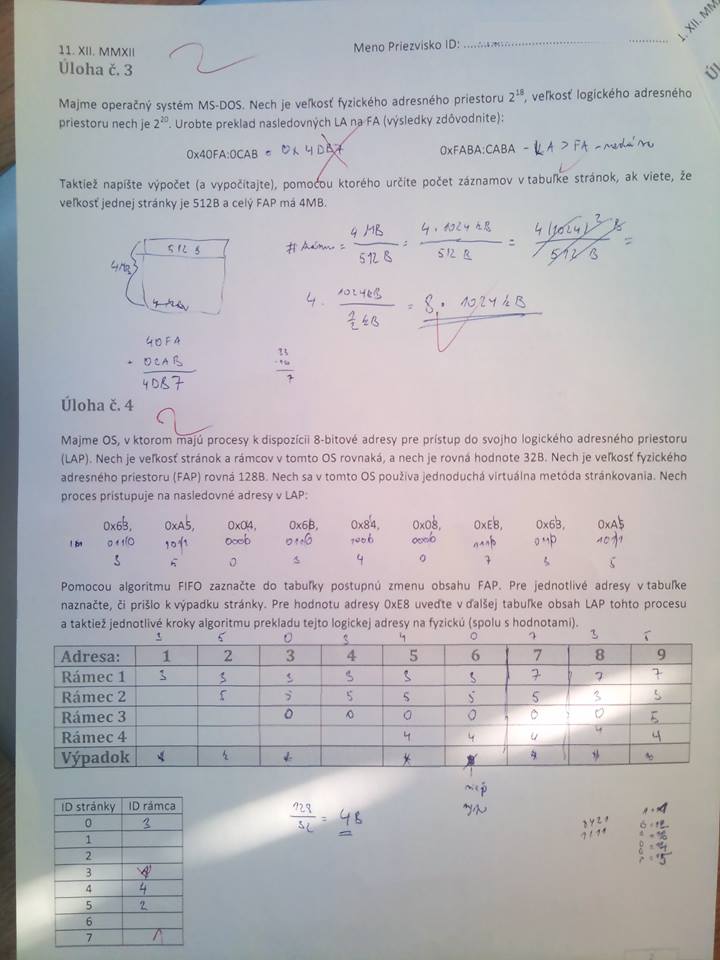 11. XII. MMXII
Meno Priezvisko ID:
1. XII. MM
Úloha č. 3
2
Majme operačný systém MS-DOS. Nech je veľkosť fyzického adresného priestoru 2^18, veľkosť logického adresného
priestoru nech je 2^20. Urobte preklad nasledovných LA na FA (výsledky zdôvodnite):
0x40FA:0CAB = 0x 4DB7
0xFABA:CABA - LA > FA -
Taktiež napíšte výpočet (a vypočítajte), pomocou ktorého určíte počet záznamov v tabuľke stránok, ak viete, že
veľkosť jednej stránky je 512B a celý FAP má 4MB.
512 B
4MB
4 MB / 512 B = 4 . 1024 kB / 512 B = 4 (1024)^2 B / 512 B =
4 . 1024kB / 1/2 kB = 8 . 1024 kB
40FA
+ 0CAB
4DB7
7
Úloha č. 4
2
Majme OS, v ktorom majú procesy k dispozícii 8-bitové adresy pre prístup do svojho logického adresného priestoru
(LAP). Nech je veľkosť stránok a rámcov v tomto OS rovnaká, a nech je rovná hodnote 32B. Nech je veľkosť fyzického
adresného priestoru (FAP) rovná 128B. Nech sa v tomto OS používa jednoduchá virtuálna metóda stránkovania. Nech
proces pristupuje na nasledovné adresy v LAP:
0x6B, 0xA5, 0x04, 0x6B, 0x84, 0x08, 0xE8, 0x6B, 0xA5
3 5 0 3 4 0 7 3 5
Pomocou algoritmu FIFO zaznačte do tabuľky postupnú zmenu obsahu FAP. Pre jednotlivé adresy v tabuľke
naznačte, či prišlo k výpadku stránky. Pre hodnotu adresy 0xE8 uveďte v ďalšej tabuľke obsah LAP tohto procesu
a taktiež jednotlivé kroky algoritmu prekladu tejto logickej adresy na fyzickú (spolu s hodnotami).
3 5 0 3 4 0 7 3 5
Adresa: 1 2 3 4 5 6 7 8 9
Rámec 1 3 3 3 3 3 3 7 7 7
Rámec 2 5 5 5 5 5 5 3 3
Rámec 3 0 0 0 0 0 0 5
Rámec 4 4 4 4 4 4
Výpadok
ID stránky ID rámca
0 3
1
2
3
4 4
5 2
6
7 1
128 / 32 = 4B
8421
1111